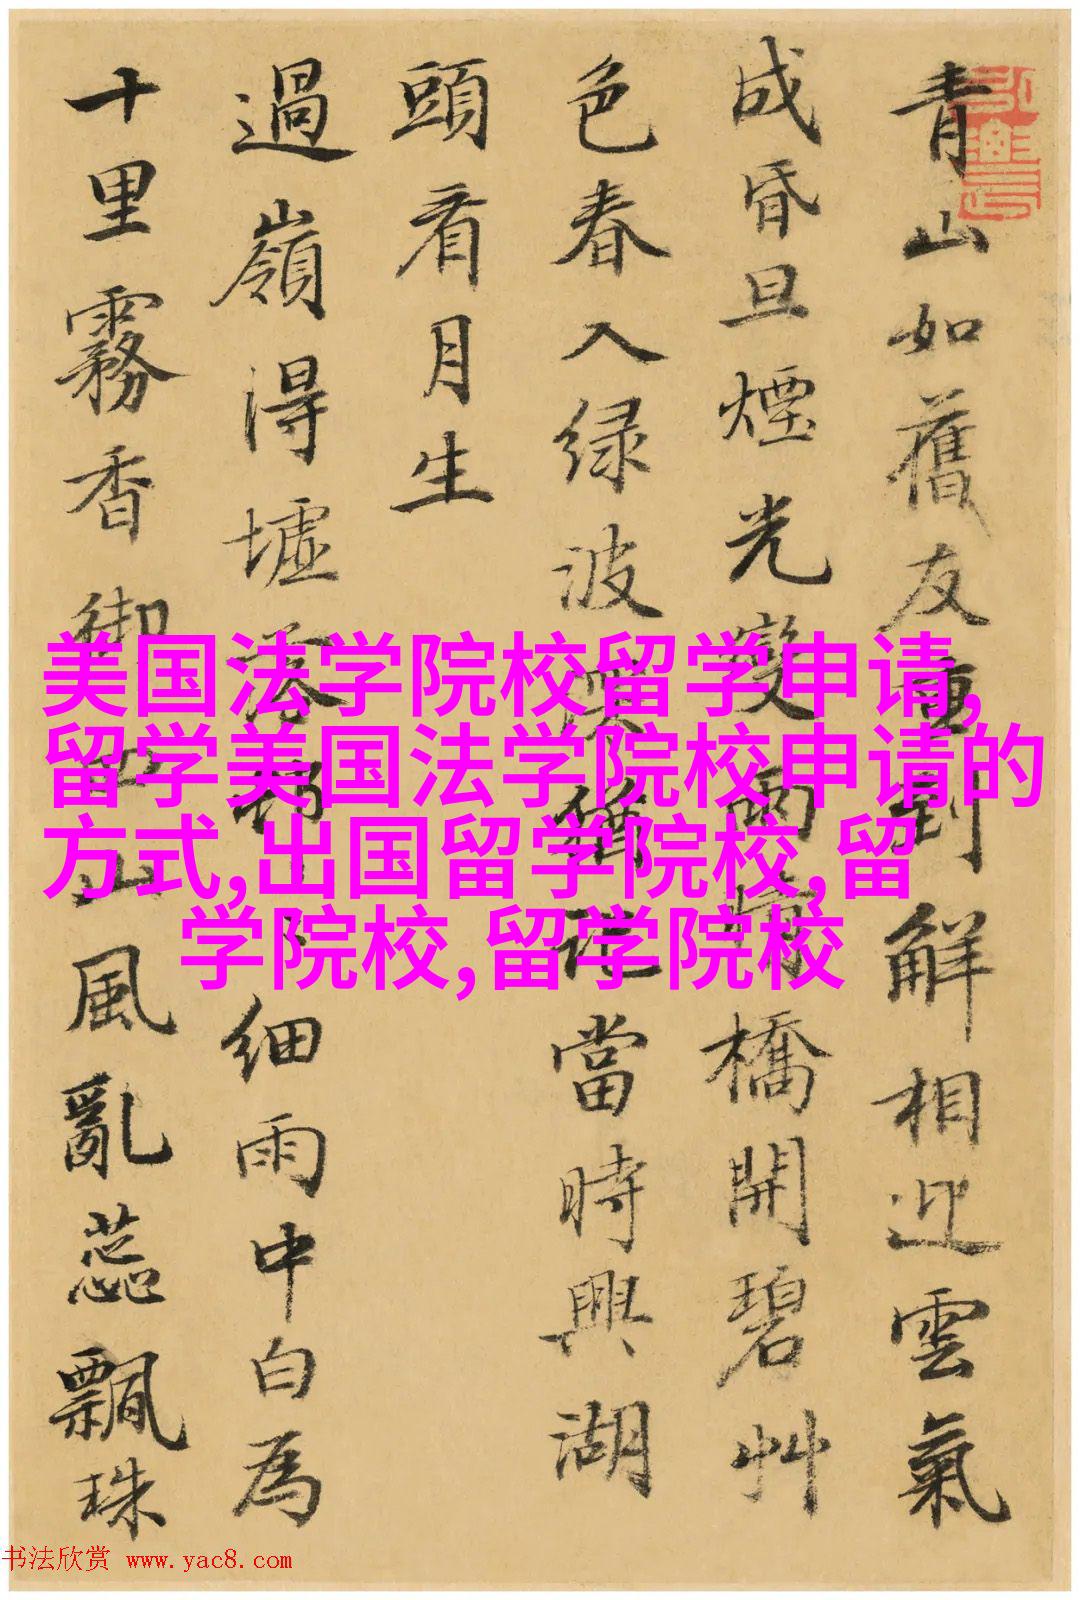 青山如舊友重到解相迎雲氣
成昏旦煙光變雨晴橋開碧艸
色春入緑波猶記當時興湖
頭看月生
過嶺得墟細雨中白為
十里霧香御四山風亂蕊飄珠
美国法学院校留学申请,
留学美国法学院校申请的
方式,出国留学院校,留
学院校,留学院校
书法欣赏 www.yac8.com